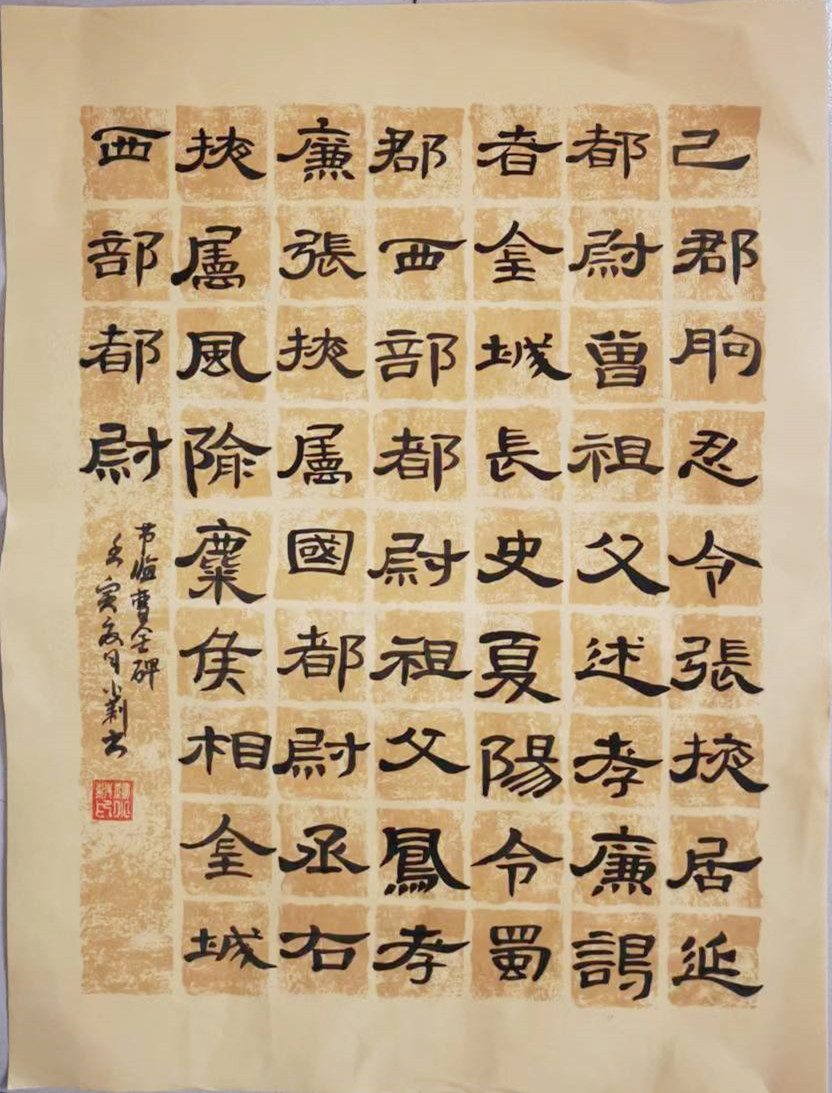 己郡朐忍令張掖居延
都尉曾祖父述孝廉謁
者金城長史夏陽令蜀
郡西部都尉祖父鳳孝
廉張掖屬國都尉丞右
掖屬風隃麋侯相金城
西部都尉
节临曹全碑
壬寅夏月小莉书